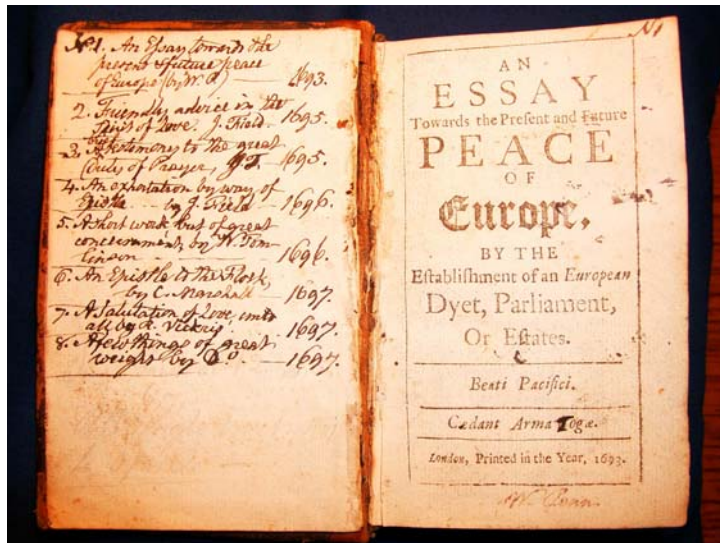 No 1. An Essay towards the
present & future peace
of Europe (by W. P) — 1693.
2. Friendly advice in the
Spirit of Love. J. Field — 1695.
3. A testimony to the great
Duty of Prayer, J.F. 1695.
4. An exhortation by way of
Epistle — by J. Field — 1696.
5. A short work but of great
concernment, by W. Tom-
linson — 1696.
6. An Epistle to the Flock,
by C. Marshall — 1697.
7. A Salutation of Love unto
all by R. Vickris. 1697.
8. A few things of great
weight by Do. — 1697.
No 1
AN
ESSAY
Towards the Present and Future
PEACE
OF
Europe,
BY THE
Eſtabliſhment of an European
Dyet, Parliament,
Or Eſtates.
Beati Pacifici.
Cædant Arma Togæ.
London, Printed in the Year, 1693.
W. Penn.